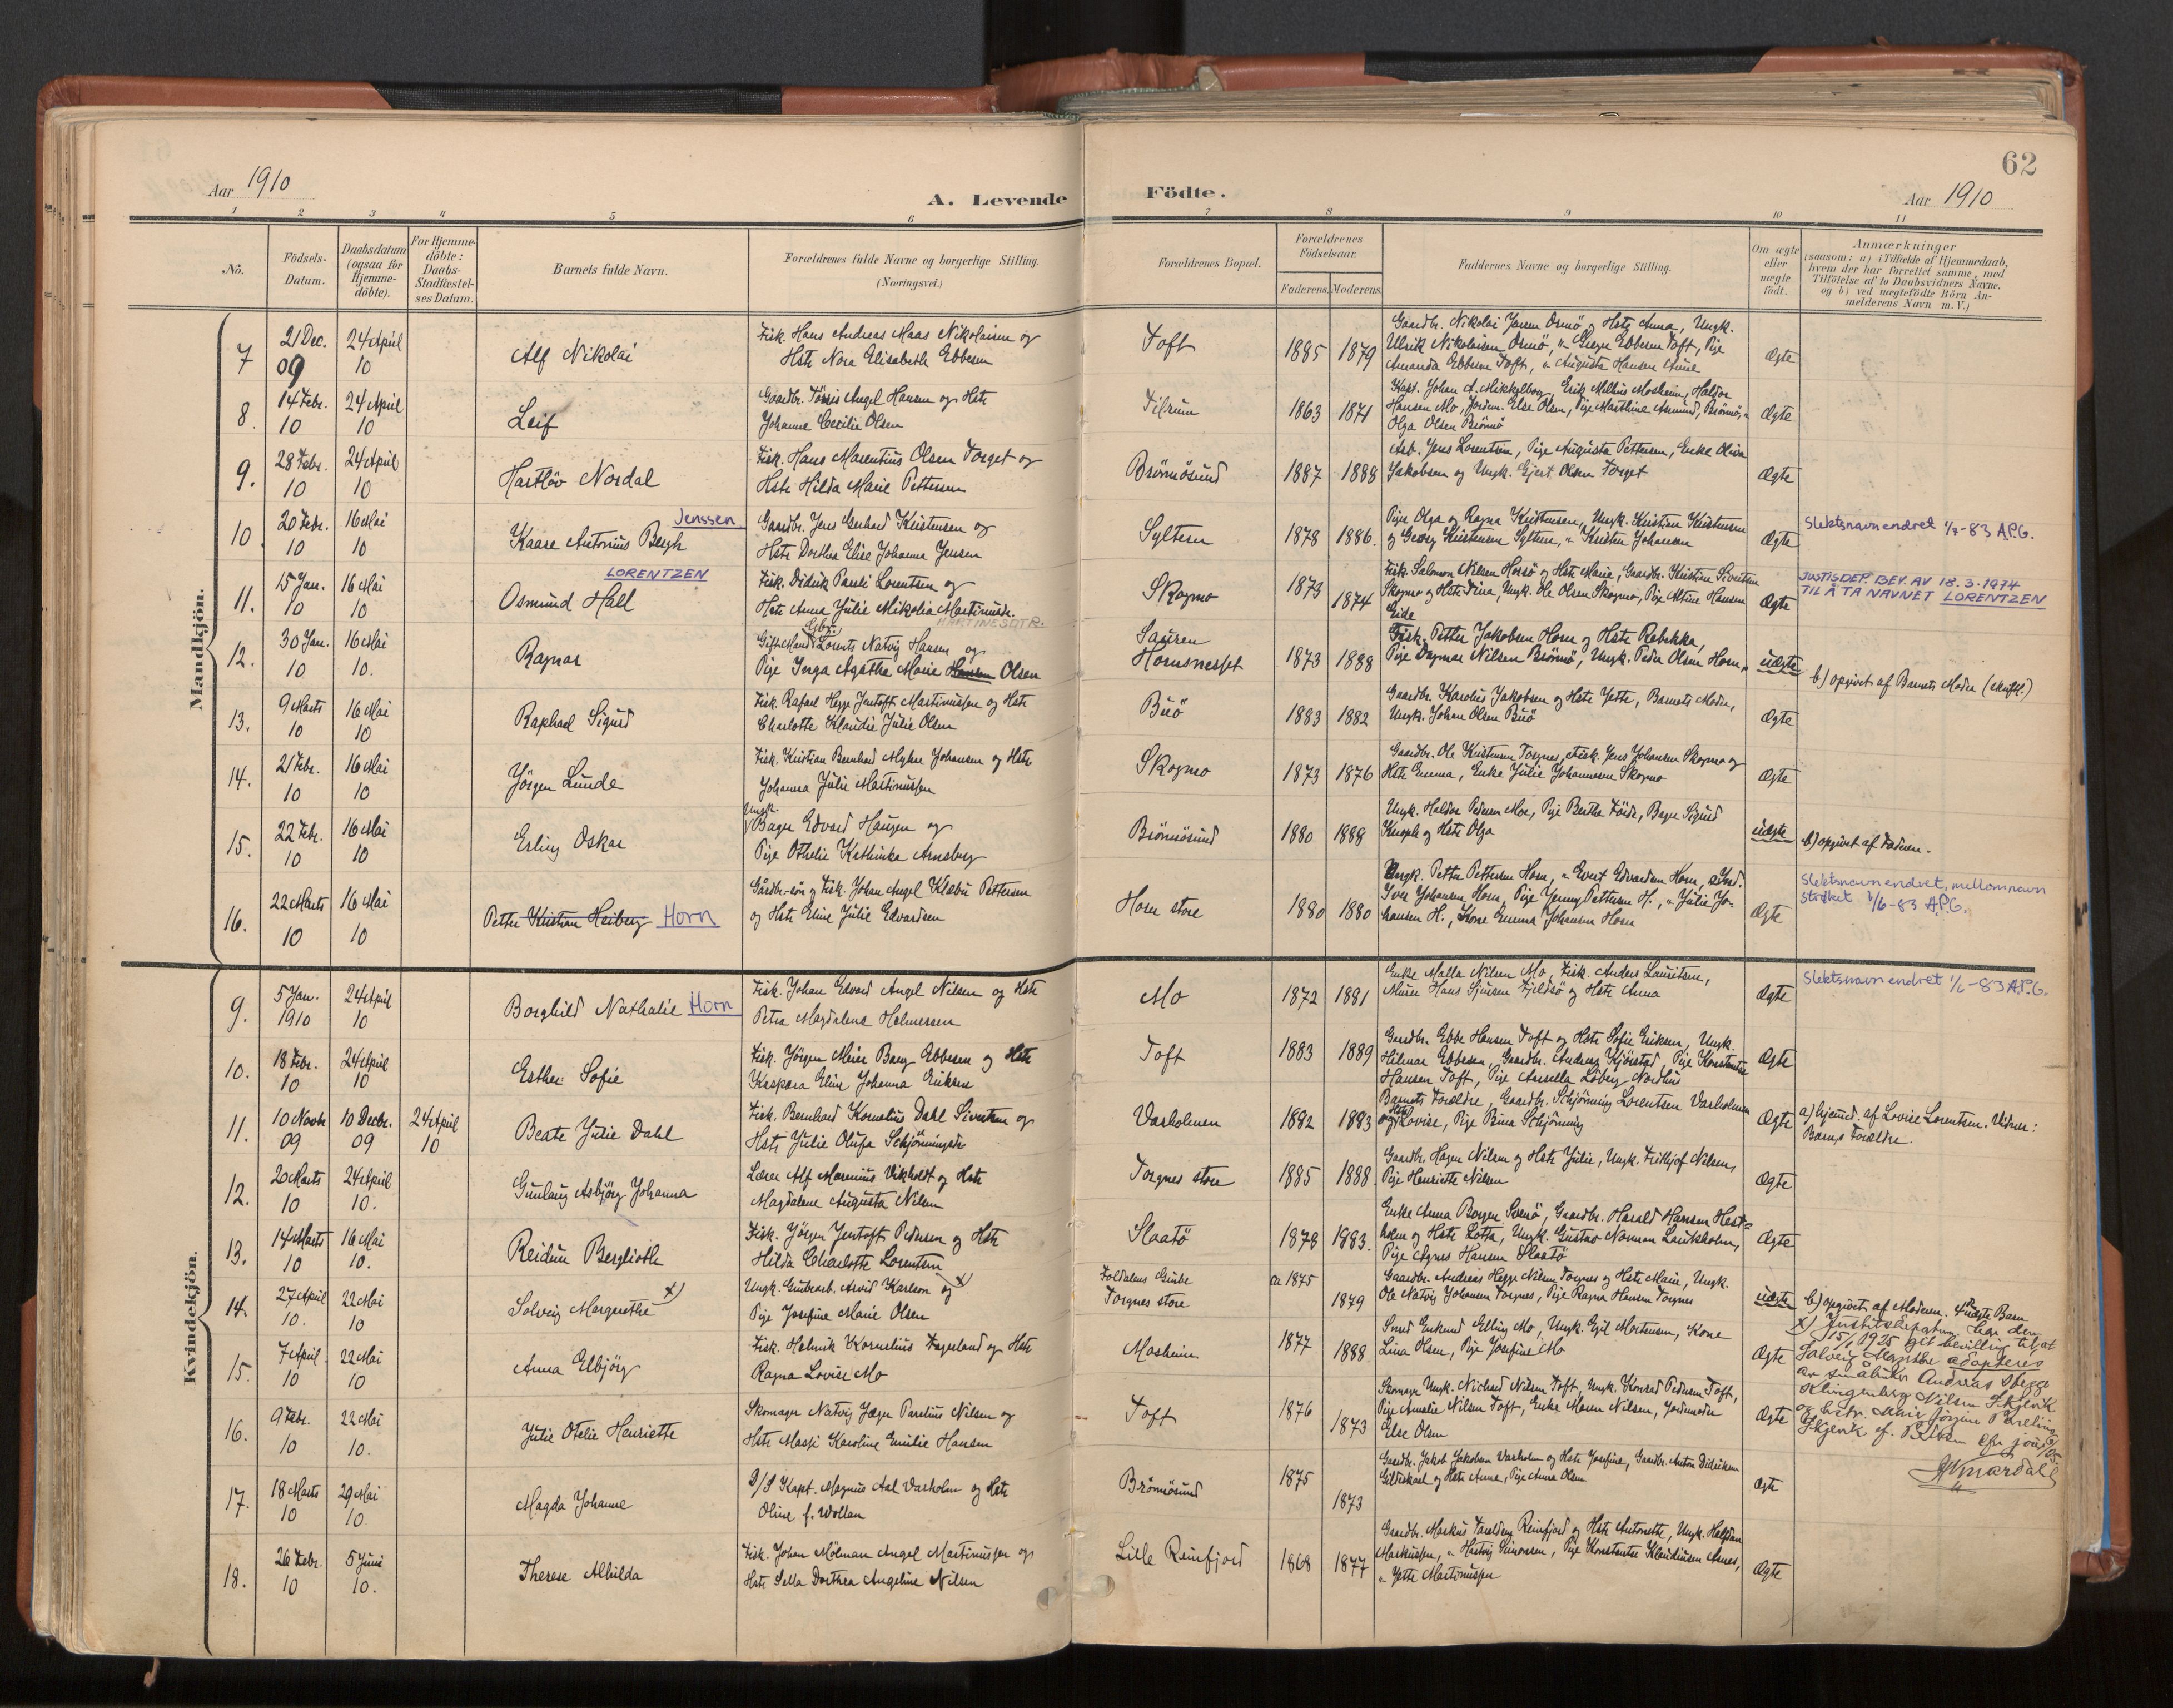 62
Aar 1910
A. Levende Födte.
Aar 1910
1 2 3 4 5 6 7 8 9 10 11
No.
Födsels-
Datum.
Daabsdatum
(ogsaa for
Hjemme-
döbte).
For Hjemme-
döbte:
Daabs-
Stadfæstel-
ses Datum.
Barnets fulde Navn.
Forældrenes fulde Navne og borgerlige Stilling.
(Næringsvei.)
Forældrenes Bopæl.
Forældrenes
Födselsaar.
Faderens. Moderens.
Faddernes Navne og borgerlige Stilling.
Om ægte
eller
uægte
født.
Anmærkninger
(saasom: a) i Tilfælde af Hjemmedaab,
hvem der har forrettet samme, med
Tilföielse af to Daabsvidners Navne.
og b) ved uægtefödte Börn An-
melderens Navn m. V.)
Mandkjön.
7 21 Dec. 09 24 April 10
Alf Nikolai
Fisk. Hans Andreas Maas Nikolaisen og
Hstr Nora Elisabeth Ebbesen
Toft 1885 1879
Gaardbr. Nikolai Jensen Osmö og Hstr Anna, Ungk.
Ulrik Nikolaisen Osmö, " Ebbesen Toft, Pige
Amanda Ebbesen Toft, " Augusta Hansen Aune
Ægte
8. 14 Febr. 10 24 April 10
Leif
Gaardbr. Törris Angel Hansen og Hstr
Johanne Cecilie Olsen
Tilrum 1863 1871
Kapt. Johan A. Mikkelborg, Erik Mosheim, Haldor
Hansen Mo, Jordm. Else Olsen, Pige Brönnö, "
Olga Olsen Brönnö
Ægte
9. 28 Febr. 10 24 April 10
Hartlöv Nordal
Fisk. Hans Marentius Olsen Torget og
Hstr Hilda Marie Pettersen
Brönnösund 1887 1888
Arb. Jens Lorentsen, Pige Augusta Pettersen, Enke Oliva
Jakobsen og Ungk. Gjert Olsen Torget
Ægte
10 20 Febr. 10 16 Mai 10
Jenssen
Kaare Antonius Bergh
Gaardbr. Jens Gerhard Kristensen og
Hstr Dorthea Elise Johanna Jensen
Syltern 1878 1886.
Pige Olga og Ragna Kristensen, Ungk. Kristian Kristensen
og Georg Kristensen Syltern, " Kristen Johansen
Ægte
Slektsnavn endret 1/7-83 A.P.G.
11. 15 Jan. 10 16 Mai 10
LORENTZEN
Osmund Hall
Fisk. Didrik Pareli Lorentsen og
Hstr Anna Julie Mikolia Martinusdr.
MARTINESDTR.
Skogmo 1873 1874
Fisk. Salomon Nilsen Horsö og Hstr Marie, Gaardbr. Kristian Sivertsen
Skogmo og Hstr Trina, Ungk. Ole Olsen Skogmo, Pige Altine Hansen
Eide
Ægte
JUSTISDEP. BEV. AV 18.3.1974
TIL Å TA NAVNET LORENTZEN
12. 30 Jan. 10 16 Mai 10.
Ragnar
Gift Mand Lorents Natvig Hansen og
Pige Inga Agathe Marie Hansen Olsen
Sauren
Hornsneset 1873 1888
Fisk. Petter Jakobsen Horn og Hstr Rebekka,
Pige Dagmar Nilsen Brönnö, Ungk. Peder Olsen Horn "
uægte
b) opgivet af Barnets Moder (skriftl.)
13. 9 Marts 10 16 Mai 10
Raphael Sigurd
Fisk. Rafael Hegge Jentoft Martinussen og Hstr
Charlotte Klaudie Julie Olsen
Buö 1883 1882
Gaardbr. Karolius Jakobsen og Hstr Jette, Barnets Moder,
Ungk. Johan Olsen Buö
Ægte
14. 21 Febr. 10 16 Mai 10
Jörgen Lunde
Fisk. Kristian Bernhard Myhre Johansen og Hstr
Johanna Julie Martinussen
Skogmo 1873 1876
Gaardbr. Ole Kristensen Torgnes, Fisk. Jens Johansen Skogmo og
Hstr Emma, Enke Julie Johannesen Skogmo
Ægte
15. 22 Febr. 10 16 Mai 10
Erling Oskar
Ungk.
Bager Edvard Haugen og
Pige Othelie Kathinka Arnsberg
Brönnösund 1880 1888
Ungk. Haldor Pedersen Moe, Pige Bertha Förde, Bager Sigurd
Knoph og Hstr Olga
uægte
b) opgivet af Faderen.
16. 22 Marts 10 16 Mai 10
Petter Kristian Heiberg Horn
Gårdbr-sön og Fisk. Johan Angel Klæbu Pettersen
og Hstr Eline Julie Edvardsen
Horn store 1880 1880
Ungk. Petter Pettersen Horn, " Evert Edvardsen Horn,
Iver Johansen Horn, Pige Jenny Pettersen H., " Julie Jo-
hansen H., Kone Emma Johansen Horn
Ægte
Slektsnavn endret, mellomnavn
strøket 1/6-83 A.P.G.
Kvindekjön.
9. 5 Jan. 1910 24 April 10
Borghild Nathalie Horn
Fisk. Johan Edvard Angel Nilsen og Hstr
Petra Magdalena Holmersen
Mo 1872 1881
Enke Malla Nilsen Mo, Fisk. Anders Lauritsen,
Murer Hans Sjursen Fjeldsö og Hstr Anna
Ægte
Slektsnavn endret 1/6-83 A.P.G.
10. 18 Febr. 10 24 April 10
Esther Sofie
Fisk. Jörgen Meier Baeg Ebbesen og Hstr
Kaspara Eline Johanna Eriksen
Toft 1883 1889
Gaardbr. Ebbe Hansen Toft og Hstr Sofie Eriksen, Ungk.
Hilmar Ebbesen, Gaardbr. Anders Kjörstad, Pige Konstanse
Hansen Toft, Pige Arsella Löberg Nordhus
Ægte
11. 10 Novbr 09 10 Decbr. 09 24 April 10
Beate Julie Dahl
Fisk. Bernhard Kornelius Dahl Sivertsen og
Hstr Julie Olufa Schjönningsdr
Varholmen 1882 1883
Barnets Forældre, Gaardbr. Schjönning Lorentsen Varholmen
og Hstr Lovise, Pige Schjönning
Ægte
a) hjemmed. af Lovise Lorentsen. Vidner:
Barnets Forældre.
12. 20 Marts 10 24 April 10.
Gunlaug Asbjörg Johanna
Lærer Alf Marenius Vikholdt og Hstr
Magdalene Augusta Nilsen
Torgnes store 1885 1888
Gaardbr. Hagen Nilsen og Hstr Julie, Ungk. Fridtjof Nilsen,
Pige Henriette Nilsen
Ægte
13. 14 Marts 10 16 Mai 10.
Reidun Berglioth
Fisk. Jörgen Jentoft Pedersen og Hstr
Hilda Charlotte Lorentsen
Slaatö 1878 1883.
Enke Anna Borgen Svenö, Gaardbr. Harald Hansen Hest-
holm og Hstr Lotta, Ungk. Gustav Norman Laukholm,
Pige Agnes Hansen Slaatö
Ægte
14. 27 April 10. 22 Mai 10
Solveig Margrethe x)
Ungk. Grubearb. Arvid Karlson og x)
Pige Josefine Marie Olsen
Foldalens Grube
Torgnes store ca 1875 1879
Gaardbr. Andreas Hegge Nilsen Torgnes og Hstr Marie, Ungk.
Ole Natvig Johansen Torgnes, Pige Ragna Hansen Torgnes
uægte
b) opgivet af Moderen. 4de uægte Barn
x) Justitsdepartm. har den
15/1 1925 git bevilling til at
Solveig Margrethe adopteres
av småbruker Andreas Hegge
Klingenberg Nilsen Skjevik
og hustr. Marie Jörgine Pareliusd.
Skjevik
15. 7 April 10 22 Mai 10
Anna Elbjörg
Fisk. Halvrik Kornelius Fagerland og Hstr
Ragna Lovise Mo
Mosheim 1877 1888
Smed Enkemd Elling Mo, Ungk. Egil Mortensen, Kone
Lina Olsen, Pige Josefine Mo
Ægte
16. 9 Febr. 10 22 Mai 10.
Julie Otelie Henriette
Skomager Natvig Jæger Parelius Nilsen og
Hstr Masji Karoline Emilie Hansen
Toft 1876 1873
Skomager Ungk. Richard Nilsen Toft, Ungk. Konrad Pedersen Toft,
Pige Amalie Nilsen Toft, Enke Maren Nilsen, Jordmoder
Else Olsen
Ægte
17. 18 Marts 10 29 Mai 10
Magda Johanne
D/S Kapt. Magnus Aal Varholm og Hstr
Oline f. Wollan
Brönnösund 1875 1873
Gaardbr. Jakob Jakobsen Varholm og Hstr Josefine, Gaardbr. Anton Didriksen
Gildeskaal og Hstr Anna, Pige Anna Olsen
Ægte
18. 26 Febr. 10 5 Juni 10.
Therese Alhilda
Fisk. Johan Mölman Angel Martinussen og
Hstr Sella Dorthea Angeline Nilsen
Lille Reinfjord 1868 1877
Gaardbr. Markus Reinfjord og Hstr Antonette, Ungk. Halfdan
Markussen, " Hartvig Simonsen, Pige Konstanse Klaudiusen Aunes,
" Jette Martinussen
Ægte